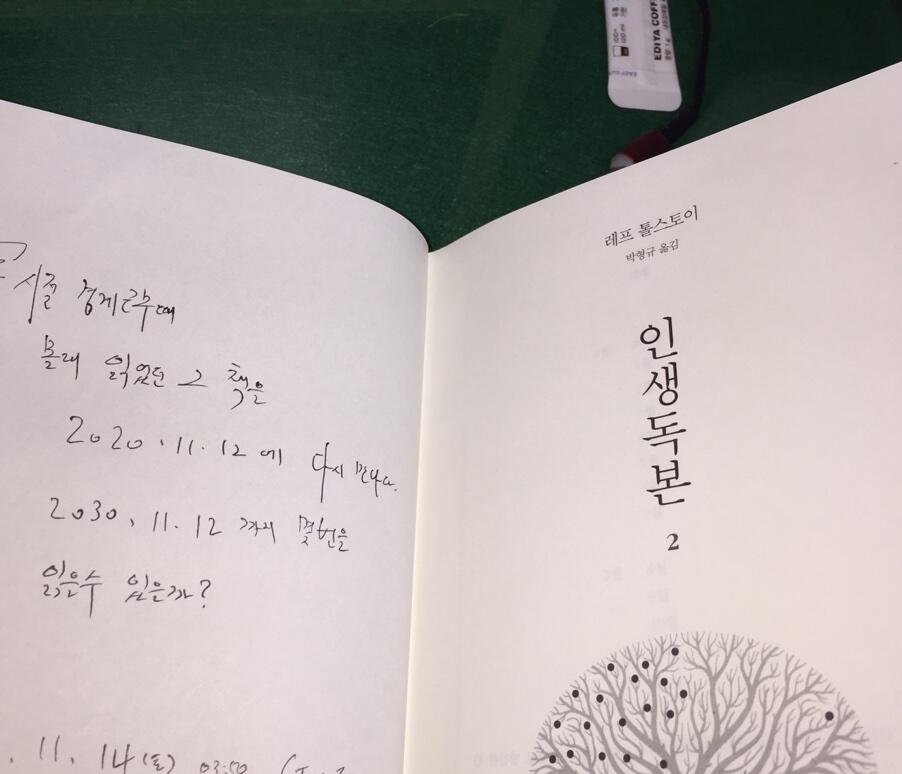 시절 경계근무때
몰래 읽었던 그 책을
2020. 11. 12 에 다시 만나다.
2030. 11. 12 까지 몇번을
읽을수 있을까?
11. 14 (토) 03:50
레프 톨스토이
박형규 옮김
인생독본
2
EDIYA COFF
EASY CUT